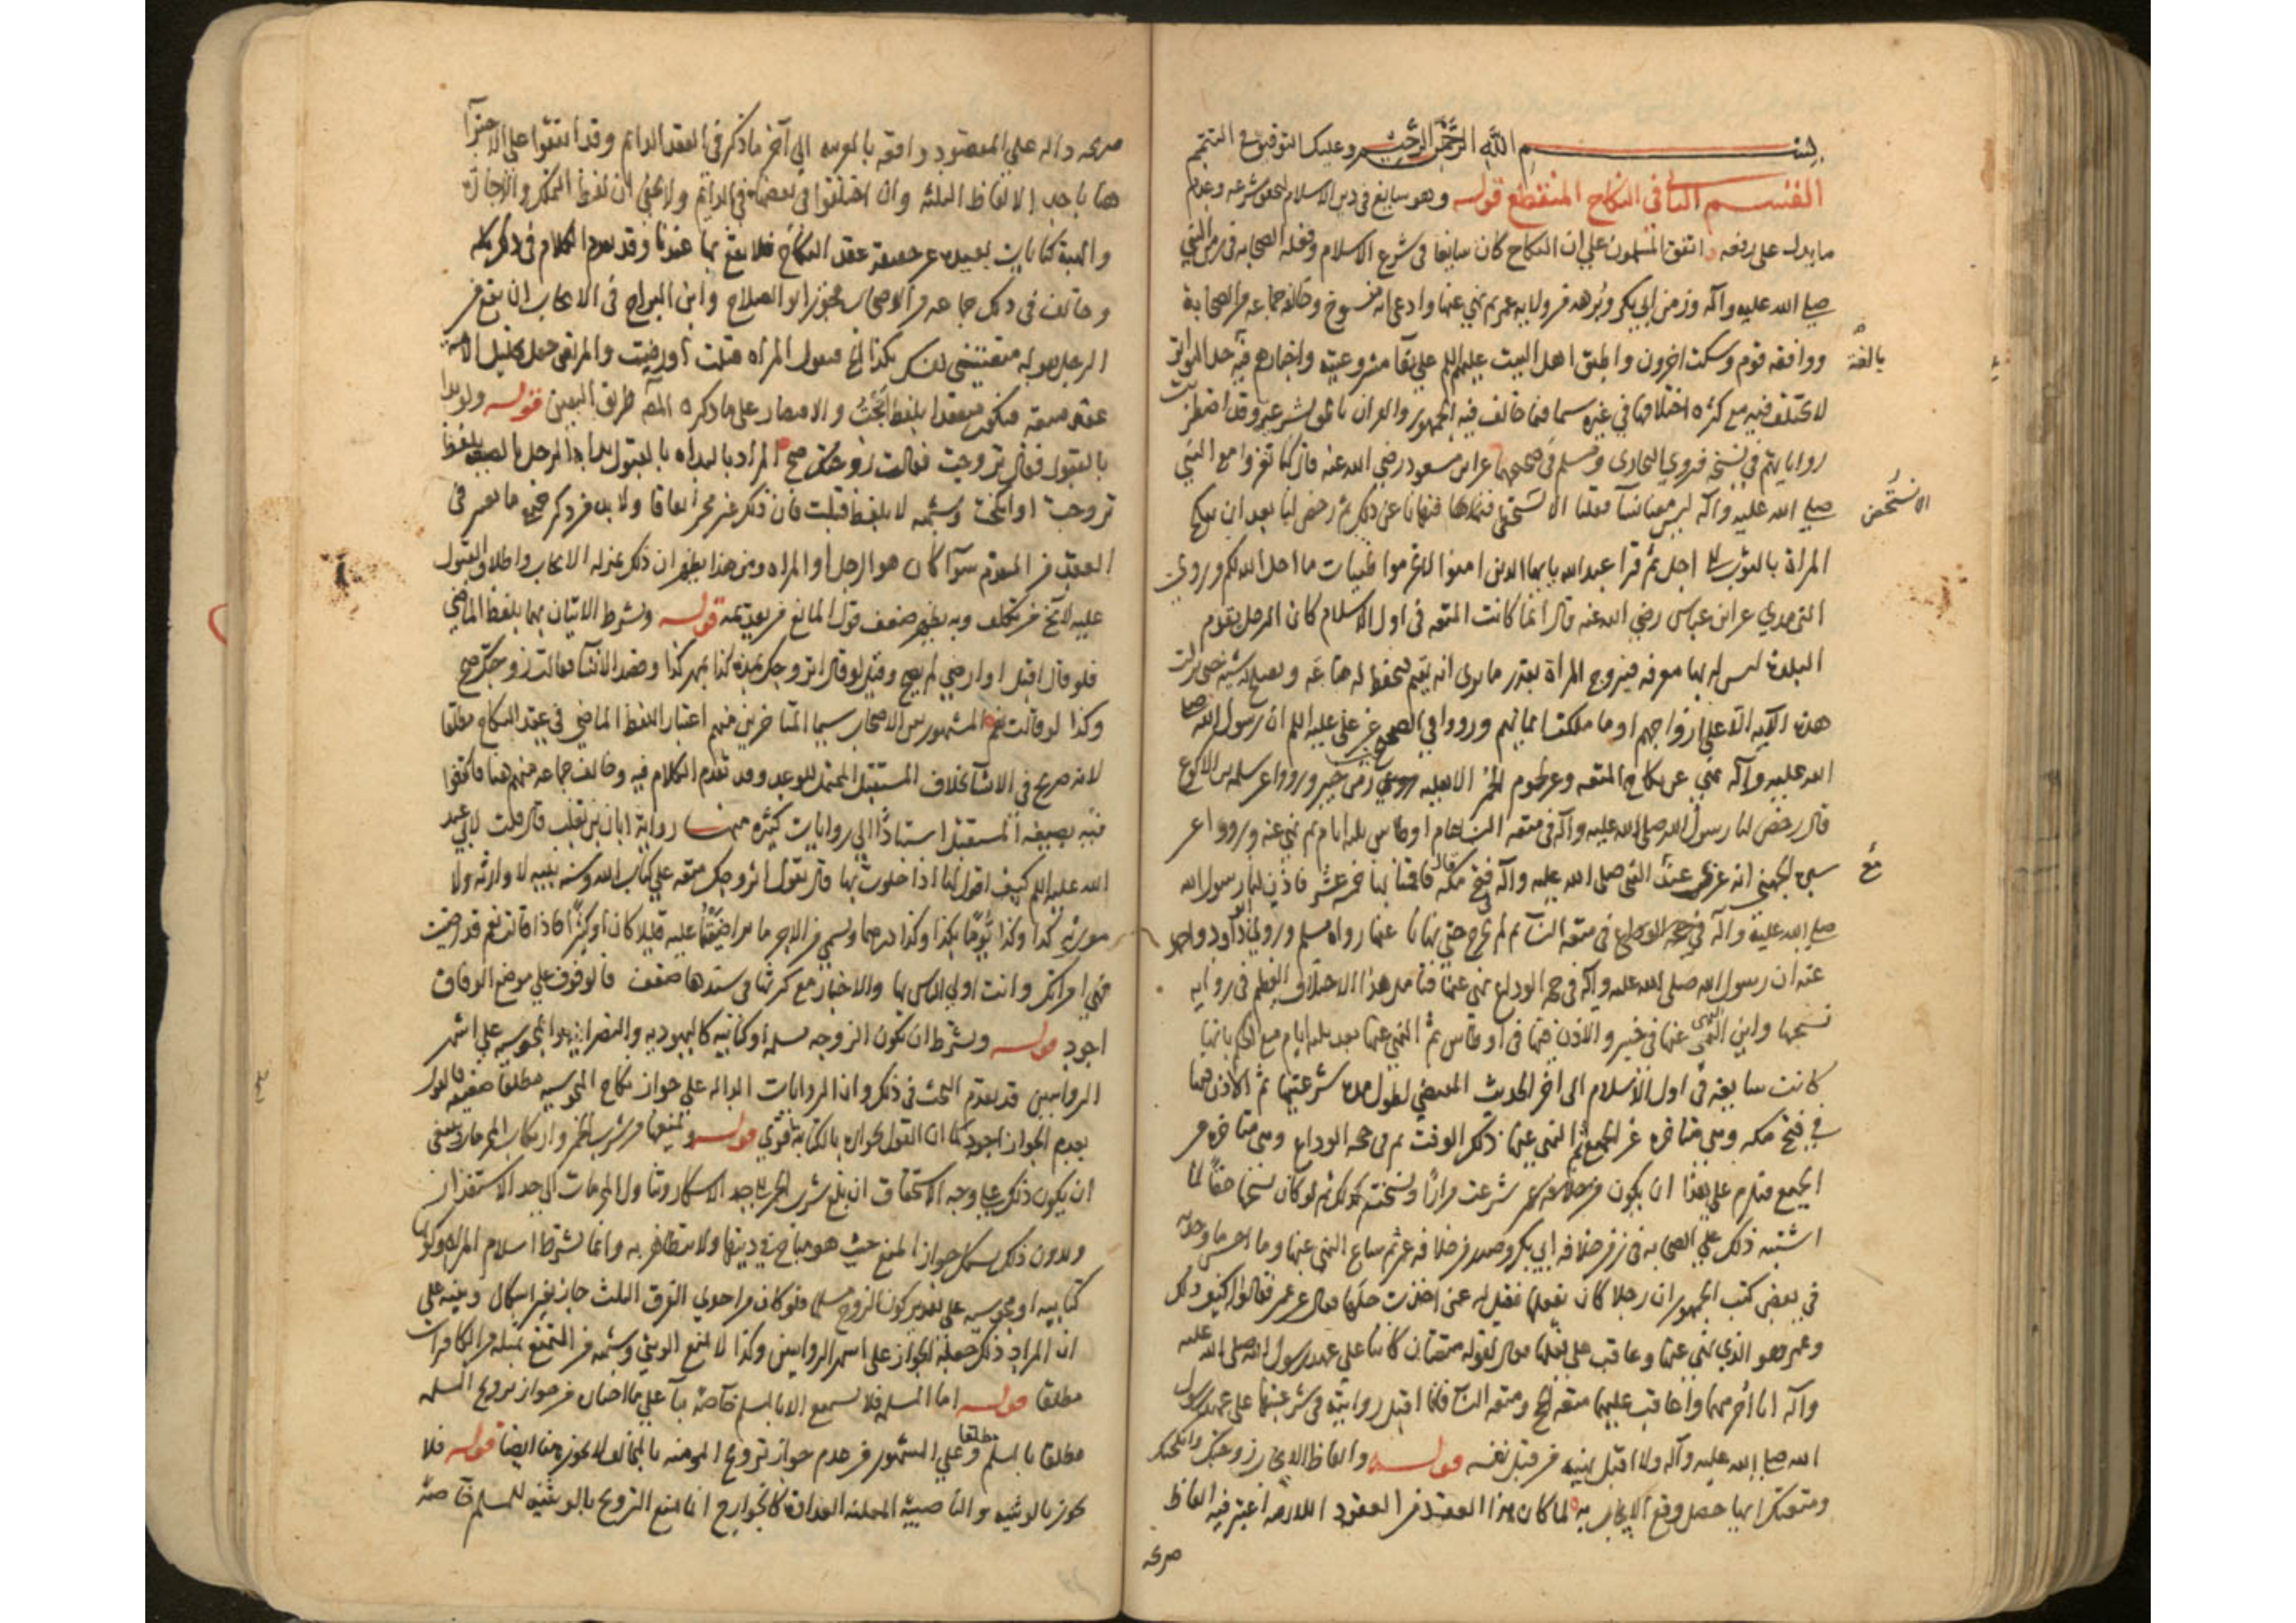 بسم الله الرحمن الرحيم وعليك التوفيق في التتميم
القسم الثاني في النكاح المنقطع قوله وهو سايغ في دين الاسلام لتحقق شرعيته وعدم
ما يدل على رفعه اتفق المسلمون على ان النكاح كان سايغا في شرع الاسلام وفعله الصحابة في زمن النبي
صلى الله عليه وآله وزمن ابي بكر وبرهة من ولاية عمر ثم نهى عنها وادعى انه منسوخ وخالفه جماعة من الصحابة
بالغة
ووافقه قوم وسكت اخرون واطبق اهل البيت عليهم السلم على بقآ مشروعيته واخبارهم فيه حد التواتر
لا تختلف فيه مع كثرة اختلافها في غيره سيما فيما خالف فيه الجمهور والقران ناطق بشرعيته وقد اضطربت
رواياتهم في نسخه فروى البخاري ومسلم في صحيحهما عن ابن مسعود رضي الله عنه قال كنا نغزوا مع النبي
الا نستخصى
صلى الله عليه وآله ليس معنا نسآ فقلنا الا نستخصى فنهانا عن ذلك ثم رخص لنا بعد ان ننكح
المراة بالثوب الى اجل ثم قرا عبد الله يا ايها الذين امنوا لا تحرموا طيبات ما احل الله لكم وروى
الترمدي عن ابن عباس رضي الله عنه قال انما كانت المتعه في اول الاسلام كان الرجل يقدم
البلدة ليس له بها معرفه فيتزوج المراة بقدر ما يرى انه يقيم فتحفظ له متاعه وتصلح له شيئه حتى نزلت
هذه الآيه الا على ازواجهم او ما ملكت ايمانهم ورووا في الصحيح عن علي عليه السلم ان رسول الله صلى
الله عليه وآله نهى عن نكاح المتعه وعن لحوم الحمر الاهليه زمن خيبر ورووا عن سلمه بن الاكوع
قال رخص لنا رسول الله صلى الله عليه وآله في متعه النسآ عام اوطاس ثلثه ايام ثم نهى عنه ورووا عن
مع
سبرة الجهني انه غزى مع النبي صلى الله عليه وآله فتح مكه قال فاقمنا بها خمسة عشر فاذن لنا رسول الله
صلى الله عليه وآله في متعه النسآ ثم لم نخرج حتى نهانا عنها رواه مسلم وروى ابو داود واحمد
عنه ان رسول الله صلى الله عليه وآله في حجه الوداع نهى عنها فتامل هذا الاختلاف العظيم في رواية
نسخها واين النهي عنها في خيبر والاذن فيها في اوطاس ثم النهي عنها بعد ثلثه ايام مع الحكم بانها
كانت سايغه في اول الاسلام الى اخر الحديث المقتضى لطول مدة شرعيتها ثم الاذن فيها
في فتح مكه وهي متاخرة عن الجميع ثم النهي عنها ذلك الوقت ثم في حجه الوداع وهي متاخرة عن
الجميع فيلزم على هذا ان يكون شرعت مرارا ونسخت كذلك ثم لو كان نسخها حقا لما
اشتبه ذلك على الصحابه في زمن خلافه ابي بكر وصدر من خلافه عمر ثم شاع النهي عنها وما احسن ما وجدته
في بعض كتب الجمهور ان رجلا كان يفعلها فقيل له عمن اخذت حلها فقال عن عمر فقالوا له كيف ذلك
وعمر هو الذي نهى عنها وعاقب على فعلها فقال لقوله متعتان كانتا على عهد رسول الله صلى الله عليه
وآله انا احرمهما واعاقب عليهما متعه الحج ومتعه النسآ فانا اقبل روايته في شرعيتها على عهد رسول
الله صلى الله عليه وآله ولا اقبل نهيه من قبل نفسه قوله والفاظ الايجاب زوجتك وانكحتك
ومتعتك ايها حصل وقع الايجاب به لما كان هذا العقد من العقود اللازمه اعتبر فيه الفاظ
صريحه
صريحه داله على المقصود وافقه بالعربيه الى آخر ما ذكر في العقد الدائم وقد اتفقوا على الاجتزآ
هنا باحد الالفاظ الثلثه وان اختلفوا في بعضها في الدائم ولا يخفى ان لفظ التمليك والاجارة
والهبة كنايات بعيده عن حقيقة عقد النكاح فلا يقع بها عندنا وقد تقدم الكلام في ذلك كله
وخالف في ذلك جماعه من الاصحاب فجوز ابو الصلاح وابن البراج في الايجاب ان يقع من
الرجل بقوله متعيني نفسك بكذا فتقول المراه قبلت او رضيت والمرتضى جعل تحليل الامه
عقد متعه فيكون منعقدا بلفظ ابحت والاقتصار على ما ذكره المصنف طريق اليقين قوله ولو بدا
بالقبول فقال تزوجت فقالت زوجتك صح المراد بالبداه بالقبول بداة الرجل بالصيغة بلفظ
تزوجت او انكحت وشبهه لا بلفظ قبلت فان ذلك غير مجز اتفاقا ولا بد من ذكر جميع ما يعتبر في
العقد من المتقدم سوآ كان هو الرجل او المراه ومن هذا يظهر ان ذلك بمنزله الايجاب واطلاق القبول
عليه لا يخ من تكلف وبه يظهر ضعف قول المانع من تقديمه قوله ويشترط الاتيان بهما بلفظ الماضي
فلو قال اقبل او ارضى لم يصح وقيل لو قال اتزوجك مدة كذا بمهر كذا وقصد الانشآ فقالت زوجتك صح
وكذا لو قالت نعم المشهور بين الاصحاب سيما المتاخرين منهم اعتبار اللفظ الماضي في عقد النكاح مطلقا
لانه صريح في الانشآ بخلاف المستقبل المحتمل للوعد وقد تقدم الكلام فيه وخالف جماعه منهم هنا فاكتفوا
فيه بصيغه المستقبل استنادا الى روايات كثيره منها رواية ابان بن تغلب قال قلت لابي عبد
الله عليه السلم كيف اقول لها اذا خلوت بها قال تقول اتزوجك متعه على كتاب الله وسنه نبيه لا وارثه ولا
موروثه كذا وكذا يوما بكذا وكذا درهما وتسمى من الاجر ما تراضيتما عليه قليلا كان او كثيرا فاذا قالت نعم فقد رضيت
فهي امراتك وانت اولى الناس بها والاخبار مع كثرتها في سندها ضعف فالوقوف على موضع الوفاق
اجود قوله ويشترط ان يكون الزوجه مسلمه او كتابيه كاليهوديه والنصرانيه والمجوسيه على اشهر
الروايتين قد تقدم البحث في ذلك وان الروايات الداله على جواز نكاح المجوسيه مطلقا ضعيفه فالقول
بعدم الجواز اجود كما ان القول بجوازه بالكتابيه قوي قوله ويمنعها من شرب الخمر وارتكاب المحرمات ينبغي
ان يكون ذلك على وجه الاستحقاق ان بلغ شرب الخمر الى حد الاسكار وتناول المحرمات الى حد الاستقذار
وبدون ذلك يشكل جواز المنع حيث هو مباح في دينها ولا متظاهره به وانما يشترط اسلام المراه وكونها
كتابيه او مجوسيه على تقدير كون الزوج مسلما فلو كان من احدي الفرق الثلث جاز بغير اشكال وبنيه على
ان المراد ذلك جعله الجواز على اشهر الروايتين وكذا لا يمنع الوثني وشبهه من التمتع بمثله من الكافرات
مطلقا قوله اما المسلمه فلا تستمتع الا بالمسلم خاصة بنآ على ما اختار من جواز تزويج المسلمه
مطلقا بالمسلم مطلقا وعلى المشهور من عدم جواز تزويج المومنه بالمخالف لا يجوز هنا ايضا قوله فلا
يجوز بالوثنيه والناصبية المعلنة العداوة كالخوارج انما منع التزويج بالوثنيه للمسلم خاصة